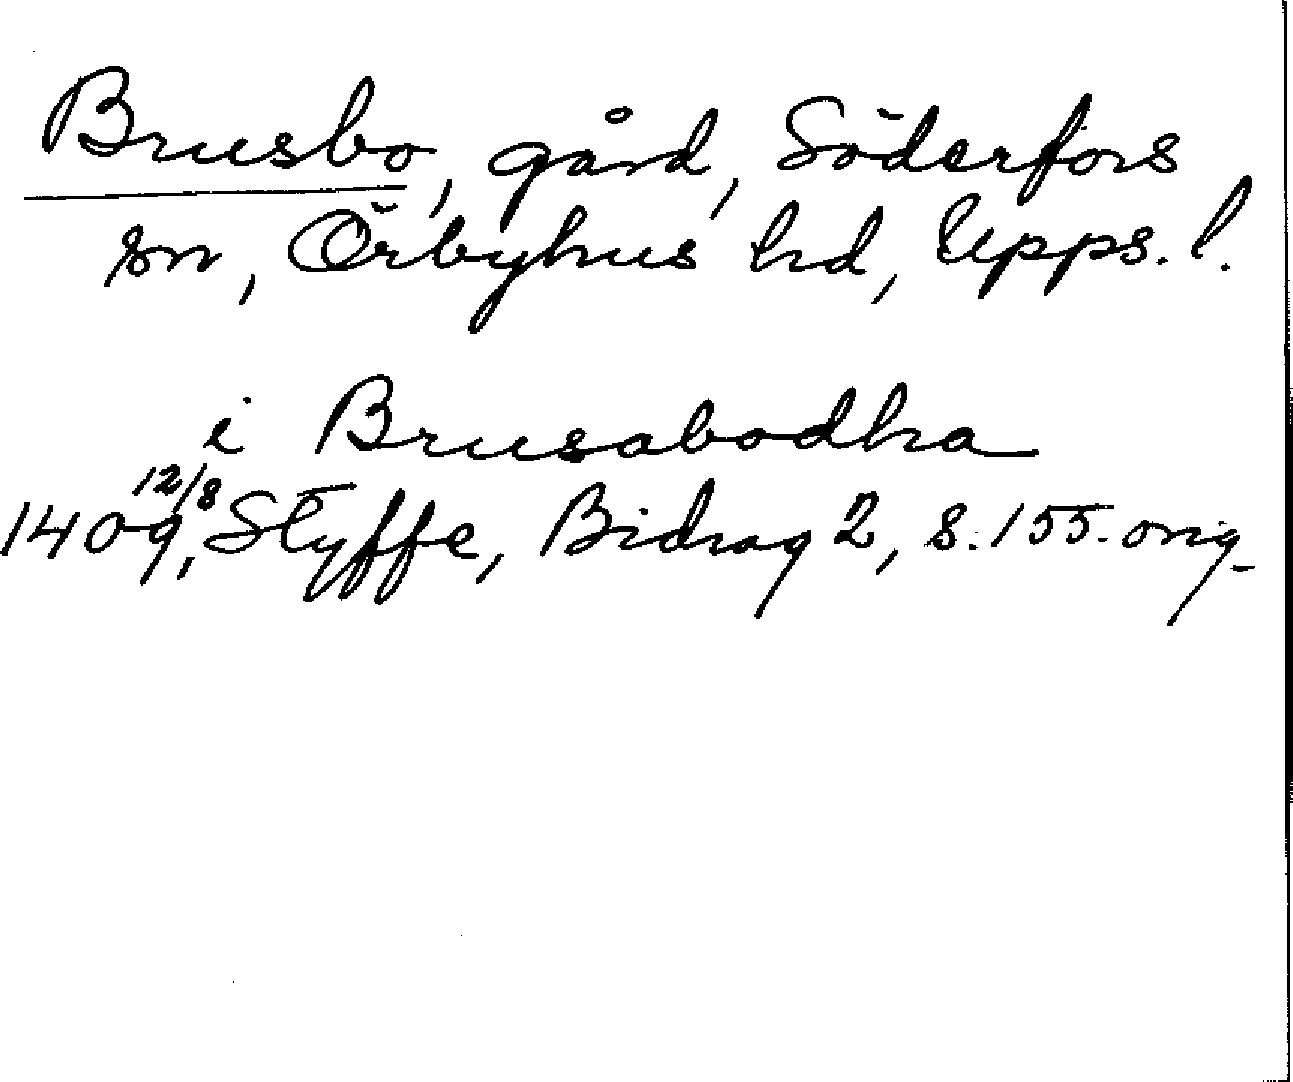 Brusbo, gård, Söderfors
sn, Örbyhus hd, Upps. l.
i Brusabodha
12/8
1409, Styffe, Bidrag 2, s. 155. orig.